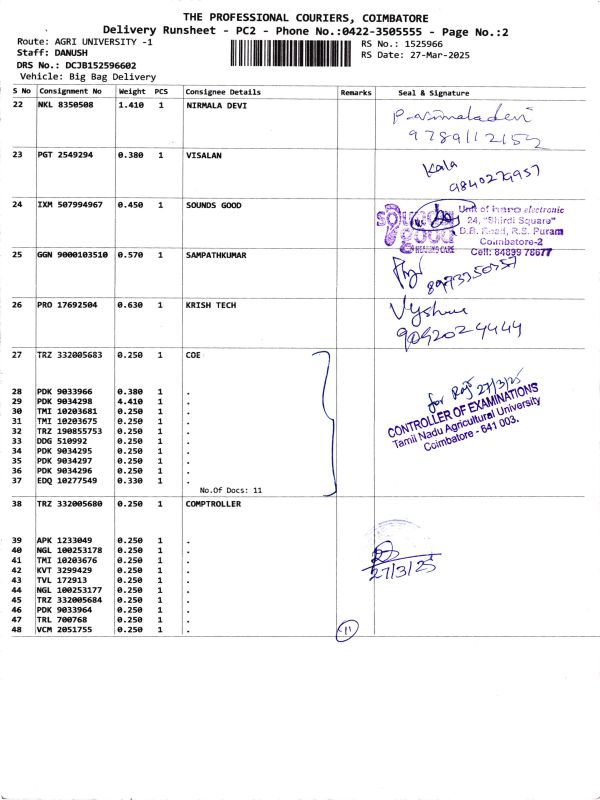 THE PROFESSIONAL COURIERS, COIMBATORE
Delivery Runsheet - PC2 - Phone No.:0422-3505555 - Page No.:2
Route: AGRI UNIVERSITY -1
RS No.: 1525966
Staff: DANUSH
RS Date: 27-Mar-2025
DRS No.: DCJB152596602
Vehicle: Big Bag Delivery
S No Consignment No Weight PCS Consignee Details Remarks Seal & Signature
22 NKL 8350508 1.410 1 NIRMALA DEVI
P. Nirmaladevi
9789112152
23 PGT 2549294 0.380 1 VISALAN
Kala
9840279957
24 IXM 507994967 0.450 1 SOUNDS GOOD
sounds good
HEARING CARE
Unit of electronic
24, "Shirdi Square"
D.B. Road, R.S. Puram
Coimbatore-2
Cell: 84899 78677
25 GGN 9000103510 0.570 1 SAMPATHKUMAR
8973350757
26 PRO 17692504 0.630 1 KRISH TECH
9092024444
27 TRZ 332005683 0.250 1 COE
28 PDK 9033966 0.380 1 .
29 PDK 9034298 4.410 1 .
30 TMI 10203681 0.250 1 .
31 TMI 10203675 0.250 1 .
32 TRZ 190855753 0.250 1 .
33 DDG 510992 0.250 1 .
34 PDK 9034295 0.250 1 .
35 PDK 9034297 0.250 1 .
36 PDK 9034296 0.250 1 .
37 EDQ 10277549 0.330 1 .
No.Of Docs: 11
for 27/3/25
CONTROLLER OF EXAMINATIONS
Tamil Nadu Agricultural University
Coimbatore - 641 003.
38 TRZ 332005680 0.250 1 COMPTROLLER
39 APK 1233049 0.250 1 .
40 NGL 100253178 0.250 1 .
41 TMI 10203676 0.250 1 .
42 KVT 3299429 0.250 1 .
43 TVL 172913 0.250 1 .
44 NGL 100253177 0.250 1 .
45 TRZ 332005684 0.250 1 .
46 PDK 9033964 0.250 1 .
47 TRL 700768 0.250 1 .
48 VCM 2051755 0.250 1 .
11
27/3/25